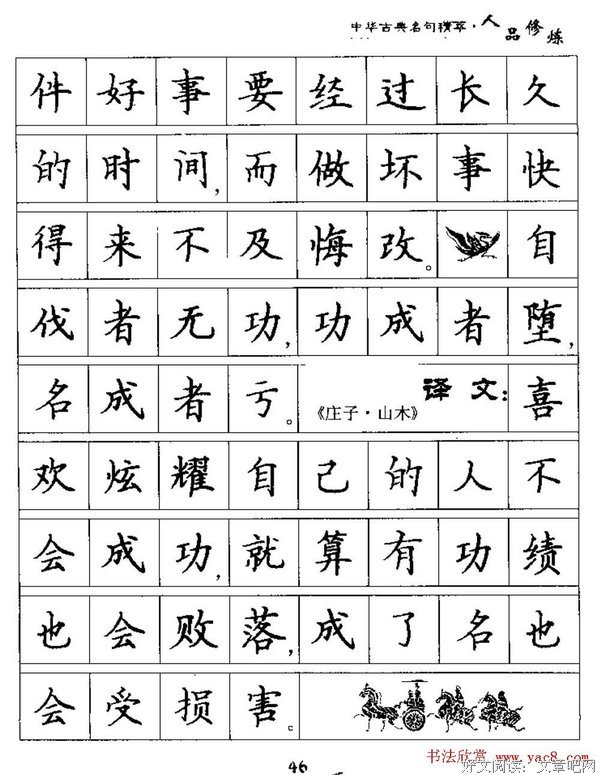 中华古典名句精萃·人品修炼
件好事要经过长久
的时间,而做坏事快
得来不及悔改。自
伐者无功,功成者堕,
名成者亏。《庄子·山木》译文:喜
欢炫耀自己的人不
会成功,就算有功绩
也会败落,成了名也
会受损害。
46
书法欣赏 www.yac8.com
好文阅读:文章吧网